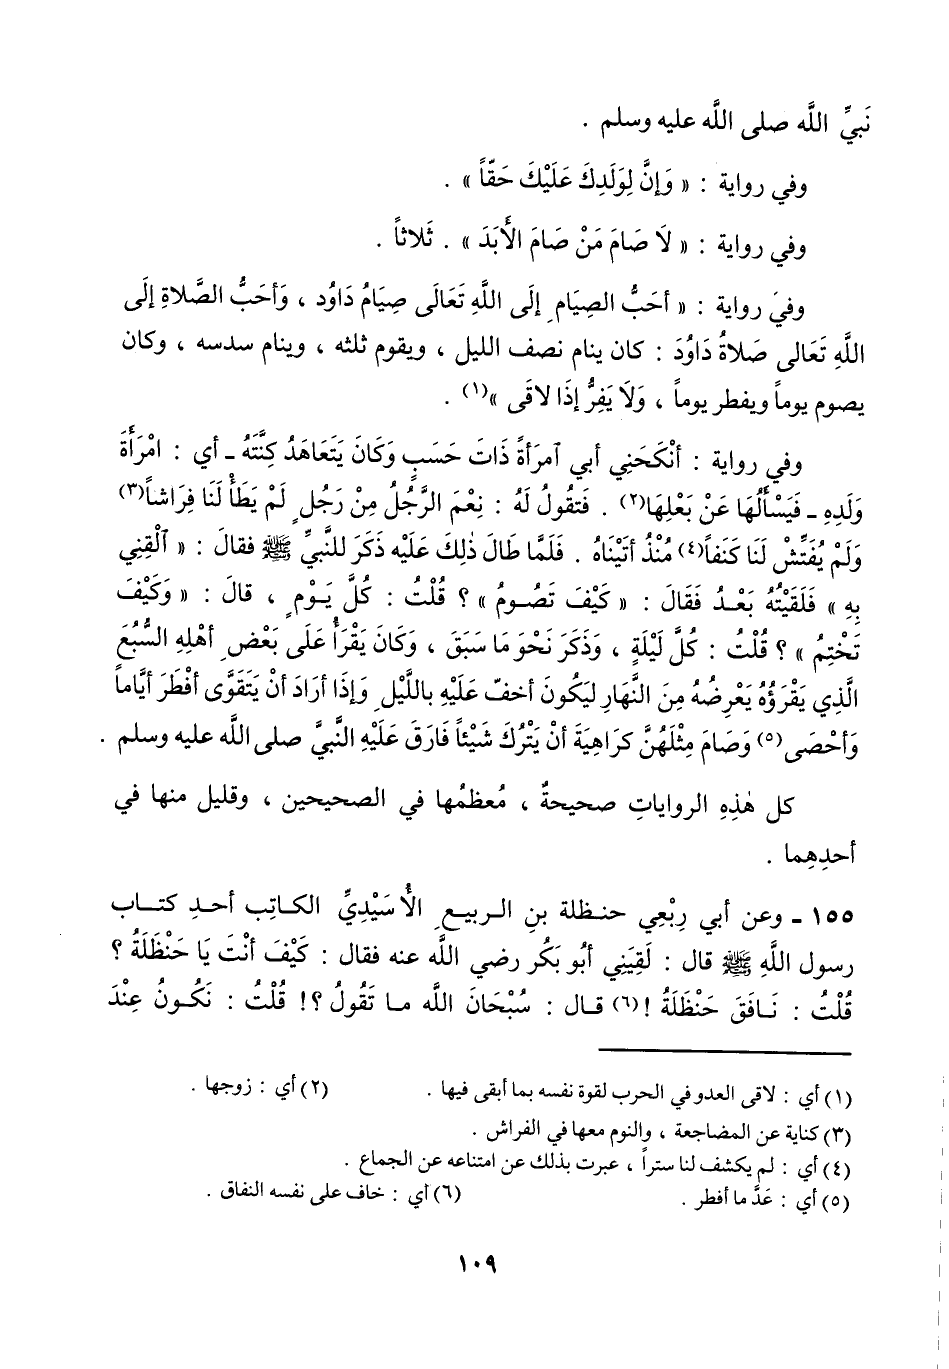 نَبيِّ اللَّه صلى اللَّه عليه وسلم .
وفي رواية : « وَإنَّ لِوَلَدِكَ عَلَيْكَ حَقّاً » .
وفي رواية : « لاَ صَامَ مَنْ صَامَ الأَبَدَ » . ثَلاثاً .
وفي رواية : « أحَبُّ الصِيَامِ إلَى اللَّهِ تَعَالَى صِيَامُ دَاوُد ، وَأحَبُّ الصَّلاةِ إلَى
اللَّهِ تَعَالَى صَلاةُ دَاوُدَ : كان ينام نصف الليل ، ويقوم ثلثه ، وينام سدسه ، وكان
يصوم يوماً ويفطر يوماً ، وَلاَ يَفِرُّ إذَا لاقَى »(١) .
وفي رواية : أنْكَحَنِي أبي ٱمرَأةً ذَاتَ حَسَبٍ وَكَانَ يَتَعَاهَدُ كِنَّتَهُ ـ أي : امْرَأَةَ
وَلَدِهِ ـ فَيَسْأَلُهَا عَنْ بَعْلِهَا(٢) . فَتَقُولُ لَهُ : نِعْمَ الرَّجُلُ مِنْ رَجُلٍ لَمْ يَطَأْ لَنَا فِرَاشاً(٣)
وَلَمْ يُفَتِّشْ لَنَا كَنَفاً(٤) مُنْذُ أتَيْنَاهُ . فَلَمَّا طَالَ ذٰلِكَ عَلَيْهِ ذَكَرَ لِلنَّبيِّ ﷺ فقالَ : « ٱلْقِنِي
بِهِ » فَلَقَيْتُهُ بَعْـدُ فَقَالَ : « كَيْفَ تَصُـومُ » ؟ قُلْتُ : كُلَّ يَـوْمٍ ، قالَ : « وَكَيْفَ
تَخْتِمُ » ؟ قُلْتُ : كُلَّ لَيْلَةٍ ، وَذَكَرَ نَحْوَ مَا سَبَقَ ، وَكَانَ يَقْرَأُ عَلَى بَعْضِ أهْلِهِ السُّبُعَ
الَّذِي يَقْرَؤُهُ يَعْرِضُهُ مِنَ النَّهَارِ لِيَكُونَ أخَفّ عَلَيْهِ بِاللَّيْلِ وَإذَا أرَادَ أنْ يَتَقَوَّى أفْطَرَ أيَّاماً
وَأحْصَى(٥) وَصَامَ مِثْلَهُنَّ كَرَاهِيَةَ أنْ يَتْرُكَ شَيْئاً فَارَقَ عَلَيْهِ النَّبيَّ صلى الله عليه وسلم .
كل هٰذِهِ الرواياتِ صحيحةٌ ، مُعظمُها في الصحيحين ، وقليل منها في
أحدِهِما .
١٥٥ ـ وعن أبي رِبْعِي حنـظلة بنِ الـربيـعِ الأُسَيْدِيِّ الكـاتِب أحـدِ كتـاب
رسول اللَّهِ ﷺ قال : لَقِيَنِي أبُو بَكْر رضي اللَّه عنه فقال : كَيْفَ أنْتَ يَا حَنْظَلَةُ ؟
قُلْتُ : نَـافَقَ حَنْظَلَةُ !(٦) قـال : سُبْحَانَ اللَّه مـا تَقُولُ ؟! قُلْتُ : نَكُـونُ عِنْدَ
(١) أي : لاقى العدو في الحرب لقوة نفسه بما أبقى فيها . (٢) أي : زوجها .
(٣) كناية عن المضاجعة ، والنوم معها في الفراش .
(٤) أي : لم يكشف لنا ستراً ، عبرت بذلك عن امتناعه عن الجماع .
(٥) أي : عَدَّ ما أفطر . (٦) أي : خاف على نفسه النفاق .
١٠٩